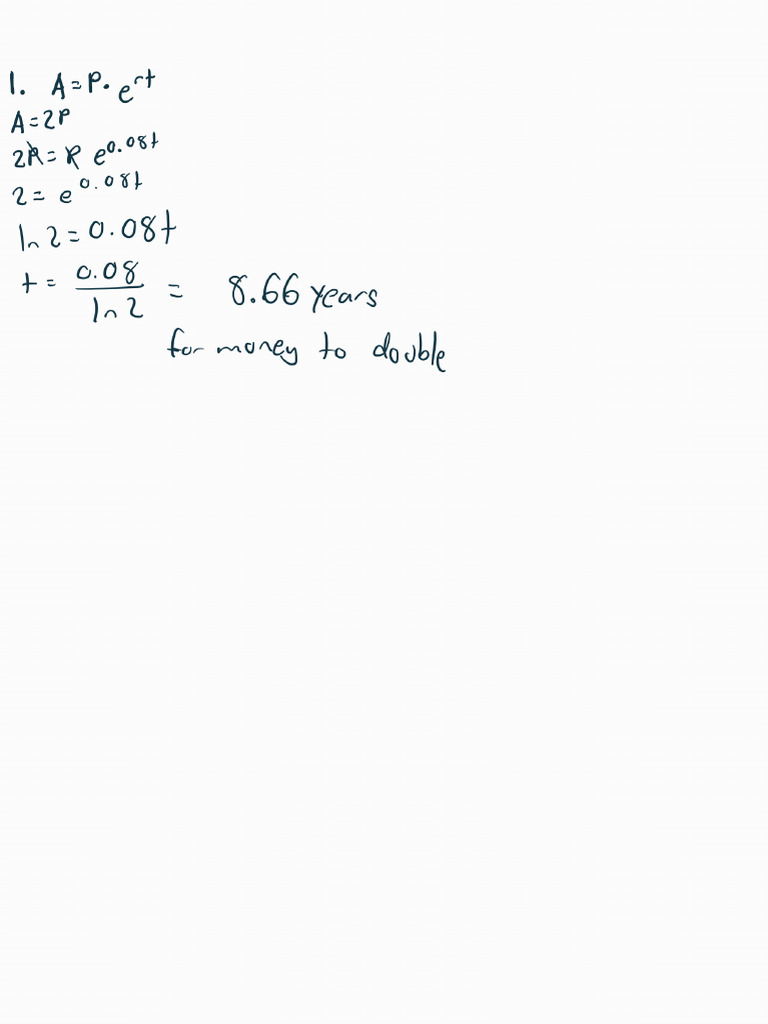 1. A = P · e^rt
A = 2P
2P = P e^0.08t
2 = e^0.08t
ln 2 = 0.08t
t = 0.08 / ln 2 = 8.66 years
for money to double